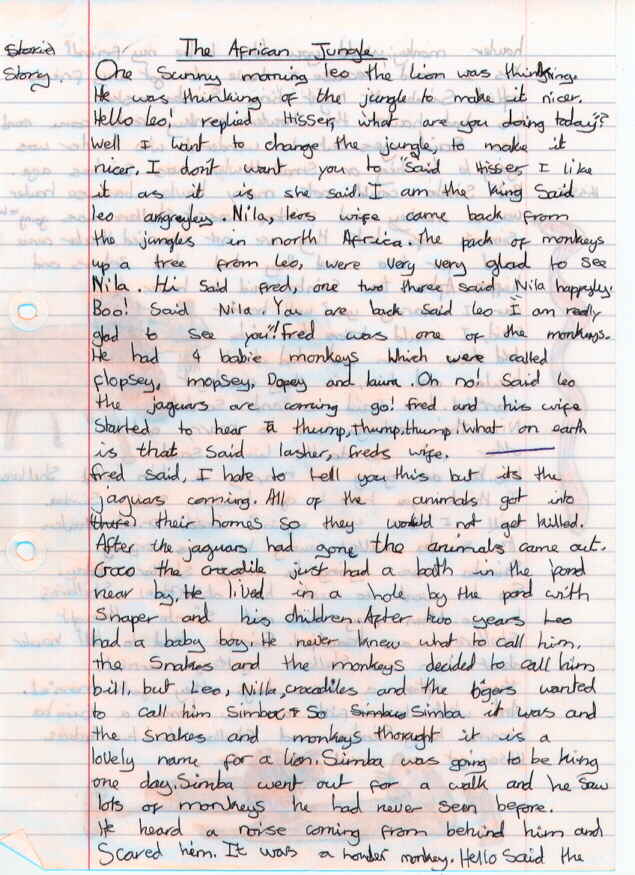 The African Jungle
Storie
Story.
One Sunny morning leo the lion was thinking.
He was thinking of the jungle to make it nicer.
Hello leo! replied Hisser, what are you doing today?
well I want to change the jungle, to make it
nicer. I don't want you to "said Hisser, I like
it as it is she said. I am the king Said
leo angreyleys. Nila, leos wife came back from
the jungles in north Africa. The pack of monkeys
up a tree from leo, were very very glad to see
Nila. Hi Said fred, one two three said Nila happegley.
Boo! Said Nila. You are back said leo I am really
glad to see you"! fred was one of the monkeys.
He had 4 babie monkeys Which were called
flopsey, mopsey, Dopey and laura. Oh no! Said leo
the jaguars are coming go! fred and his wife
Started to hear a thump, thump, thump! What on earth
is that Said lasher, freds wife.
fred said, I hate to tell you this but its the
jaguars coming. All of the animals got into
(there) their homes so they would not get killed.
After the jaguars had gone the animals came out.
Croco the crocodile just had a bath in the pond
near by. He lived in a hole by the pond with
Snaper and his children. After two years Leo
had a baby boy. He never knew what to call him.
the Snakes and the monkeys decided to call him
bill, but Leo, Nilla, crocadiles and the tigers wanted
to call him Simba So Simba it was and
the Snakes and monkeys thought it is a
lovely name for a lion. Simba was going to be king
one day. Simba went out for a walk and he Saw
lots of monkeys he had never seen before.
He heard a noise coming from behind him and
Scared him. It was a howder monkey. Hello Said the